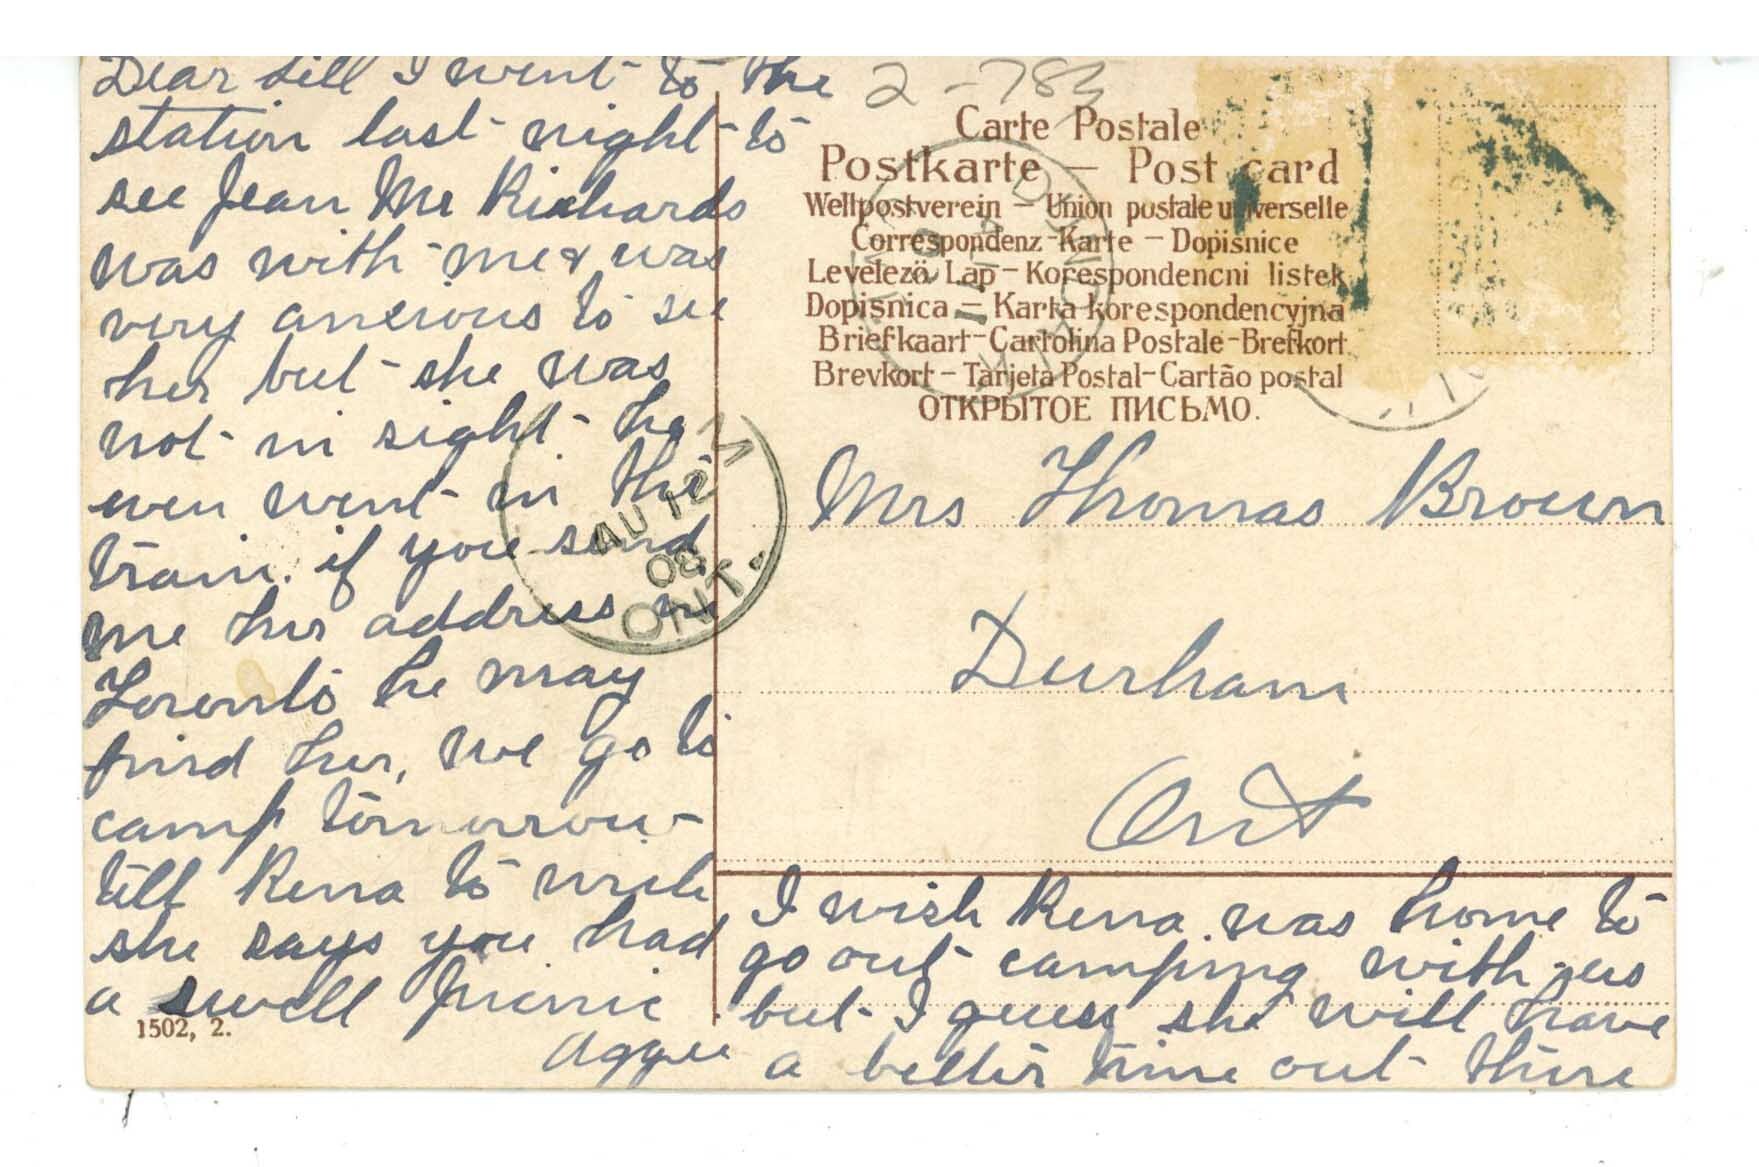 Dear Lill I went to the
station last night to
see Jean Mr Richards
was with me & was
very anxious to see
her but she was
not in sight he
even went in the
train. if you send
me her address in
Toronto he may
find her, we go to
camp tomorrow
tell Rena to write
she says you had
a swell picnic
Aggie
1502, 2.
2-783
Carte Postale
Postkarte — Post card
Weltpostverein — Union postale universelle
Correspondenz-Karte — Dopisnice
Levelező Lap — Korespondencni listek
Dopisnica — Karta korespondencyjna
Briefkaart — Cartolina Postale - Brefkort
Brevkort — Tarjeta Postal - Cartão postal
ОТКРЫТОЕ ПИСЬМО.
AU 12
08
ONT.
Mrs Thomas Brown
Durham
Ont
I wish Rena was home to
go out camping with us
but I guess she will have
a better time out there